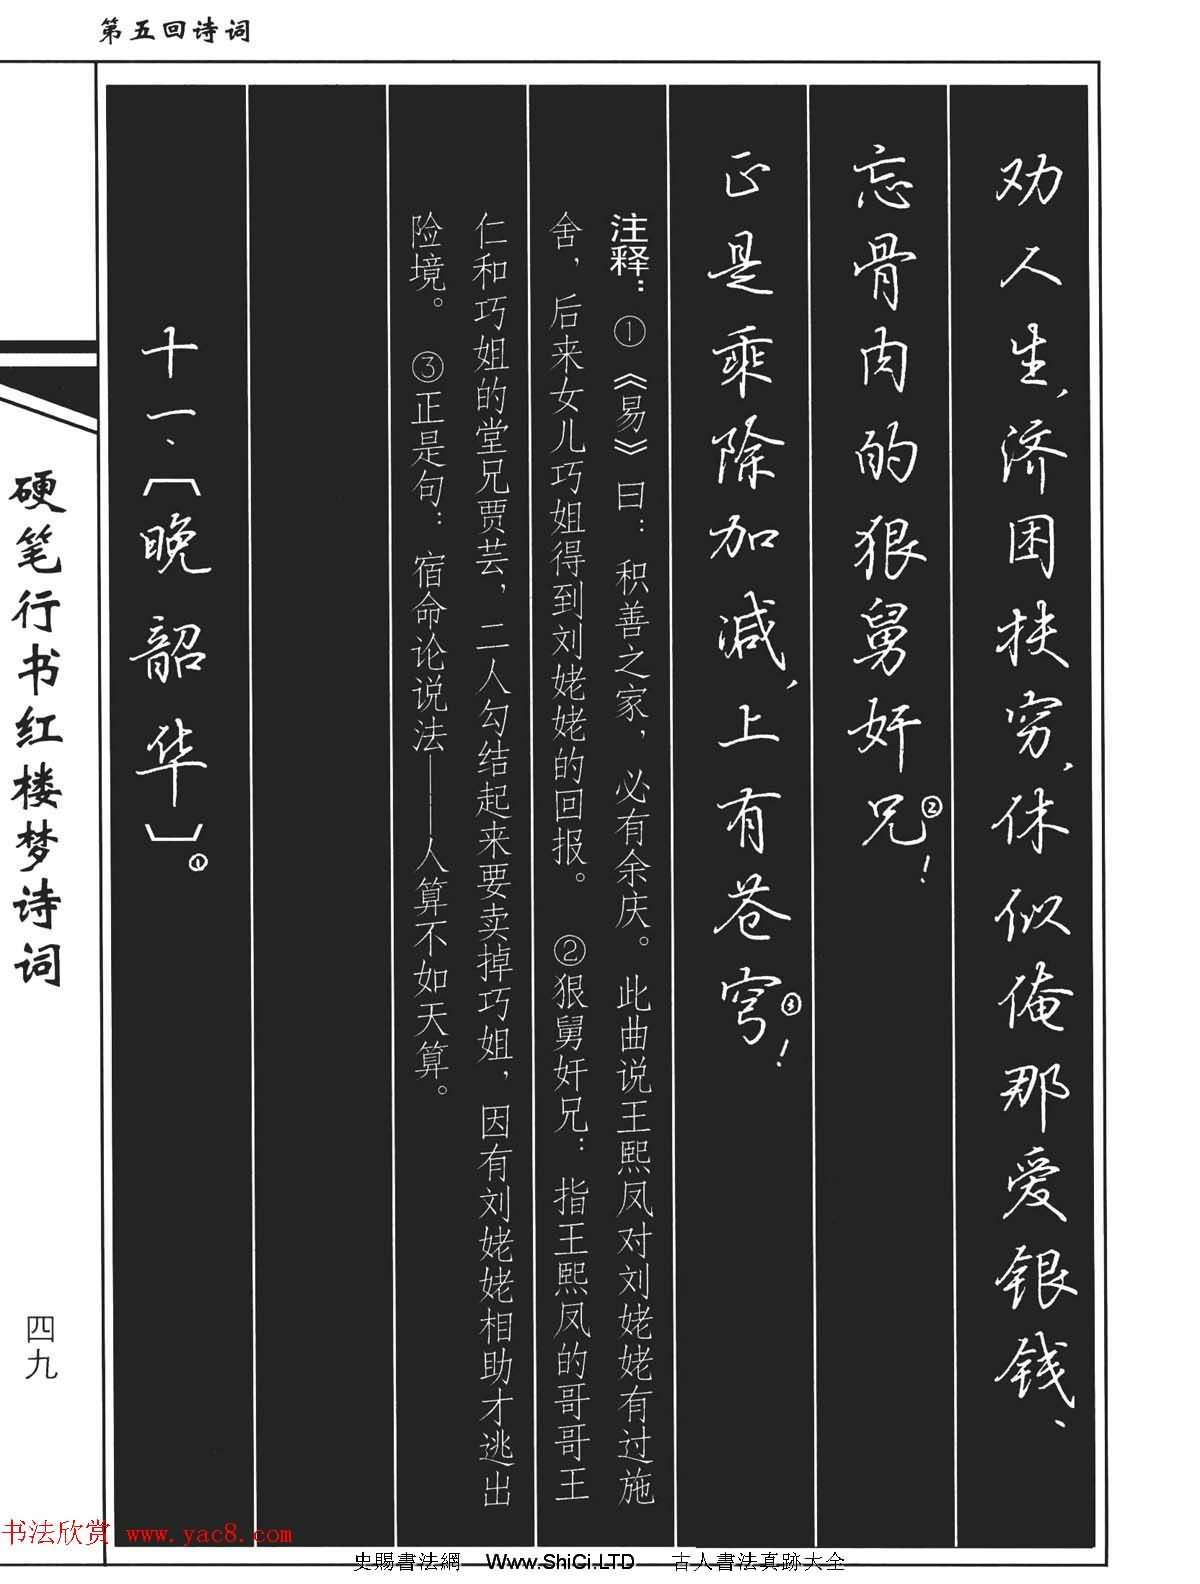 第五回诗词
劝人生，济困扶穷，休似俺那爱银钱、
忘骨肉的狠舅奸兄②！
正是乘除加减，上有苍穹③！
注释：①《易》曰：积善之家，必有余庆。此曲说王熙凤对刘姥姥有过施
舍，后来女儿巧姐得到刘姥姥的回报。 ②狠舅奸兄：指王熙凤的哥哥王
仁和巧姐的堂兄贾芸，二人勾结起来要卖掉巧姐，因有刘姥姥相助才逃出
险境。 ③正是句：宿命论说法——人算不如天算。
十一、〔晚韶华〕①
硬笔行书红楼梦诗词
四九
书法欣赏 www.yac8.com
史賜書法網 Www.ShiCi.LTD 古人書法真跡大全